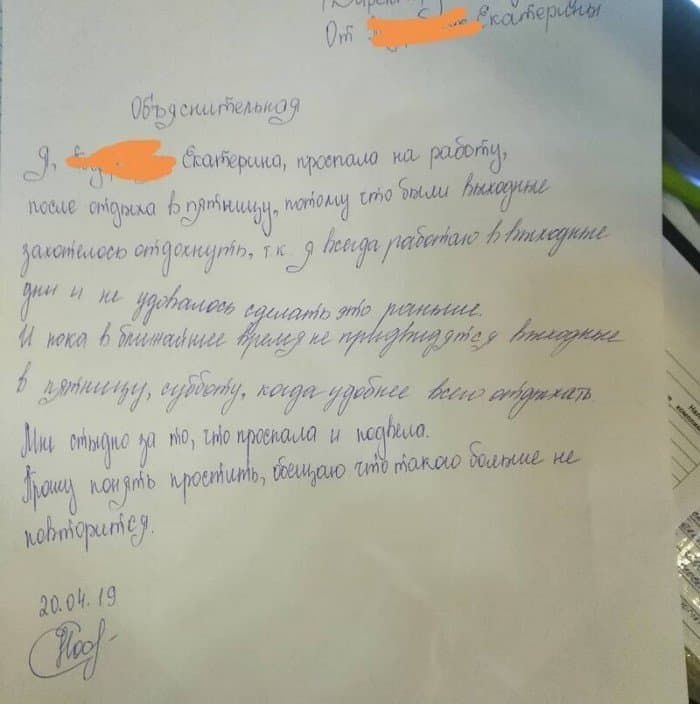 От Екатерины
Объяснительная
Я, Екатерина, проспала на работу,
после отдыха в пятницу, потому что были выходные
захотелось отдохнуть, т.к. я всегда работаю в выходные
дни и не удовалось сделать это раньше.
И пока в ближайшее время не придвидятся выходные
в пятницу, субботу, когда удобнее всего отдыхать.
Мне стыдно за то, что проспала и подвела.
Прошу понять простить, обещаю что такого больше не
повторится.
20.04.19